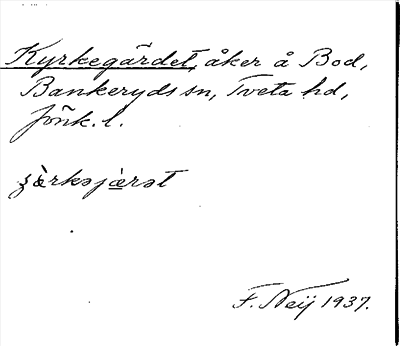 Kyrkegärdet, åker å Bod,
Bankeryds sn, Tveta hd,
Jönk. l.
F. Neij 1937.